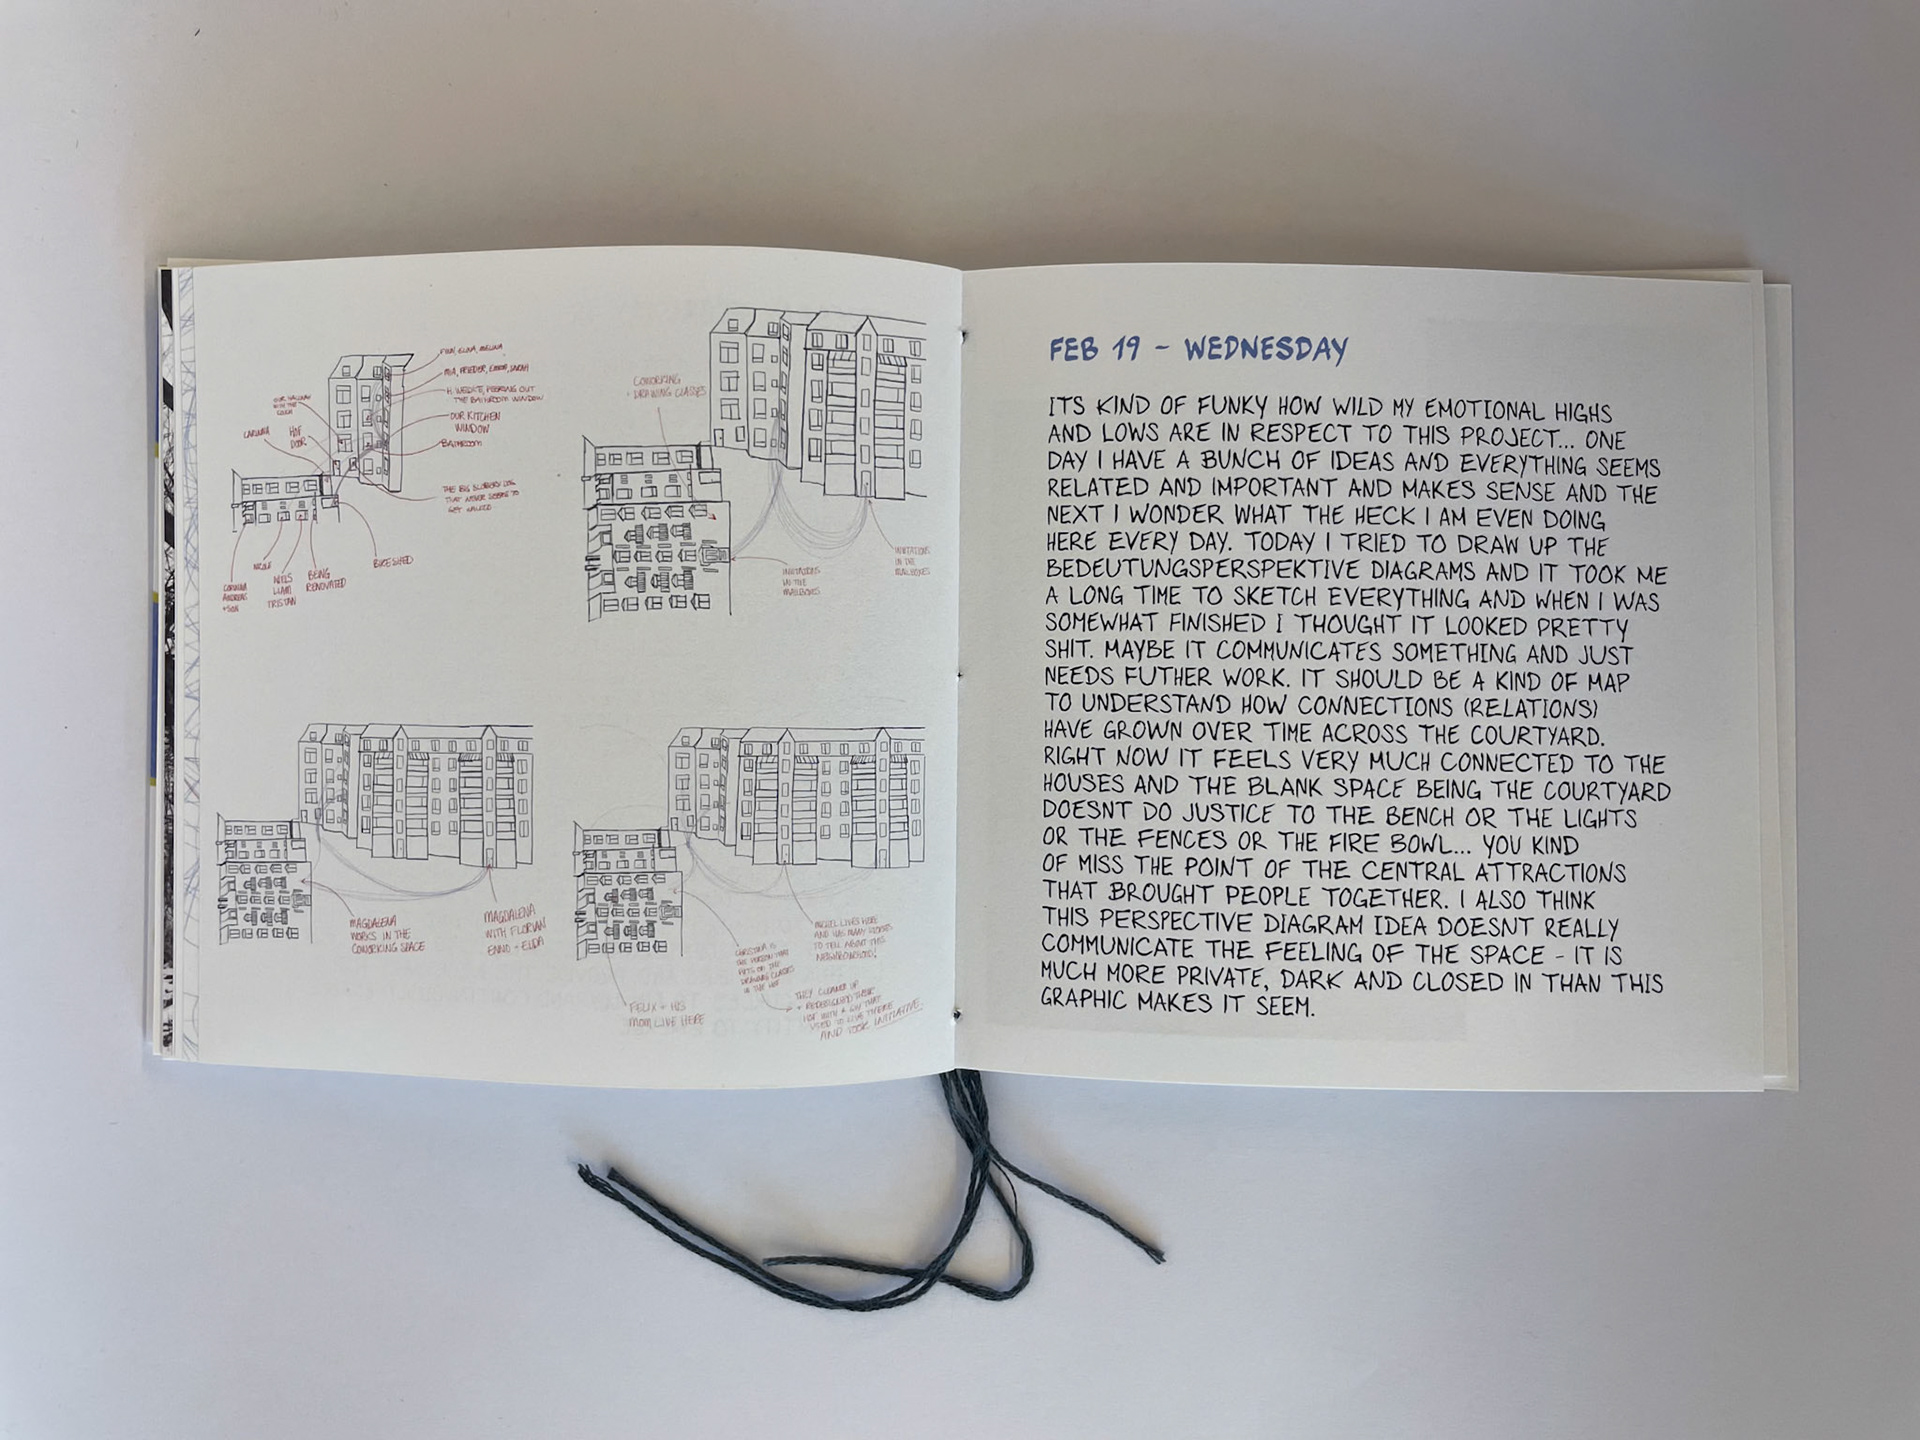 FINN, ELINA, MELINA
MIA, FRIEDER, EMMA, SARAH
H. WEDKE, PEERING OUT
THE BATHROOM WINDOW
OUR KITCHEN
WINDOW
BATHROOM
OUR HALLWAY
WITH THE
COUCH
CARINNA
HOF
DOOR
THE BIG SLOBBERY DOG
THAT NEVER SEEMS TO
GET WALKED
BIKE SHED
BEING
RENOVATED
NIELS
LIAM
TRISTAN
NICOLE
CORINNA
ANDREAS
+ SON
COWORKING
+ DRAWING CLASSES
INVITATIONS
IN THE
MAILBOXES
INVITATIONS
IN THE
MAILBOXES
MAGDALENA
WORKS IN THE
COWORKING SPACE
MAGDALENA
WITH FLORIAN
ENNO + ELDA
FELIX + HIS
MOM LIVE HERE
CHRISTINA IS
THE PERSON THAT
PUTS ON THE
DRAWING CLASSES
IN THE HOF
LIVES HERE
AND HAS MANY STORIES
TO TELL ABOUT THIS
NEIGHBOURHOOD!
THEY CLEANED UP
+ REDESIGNED THEIR
HOF WITH A GUY THAT
USED TO LIVE THERE
AND TOOK INITIATIVE
FEB 19 - WEDNESDAY
ITS KIND OF FUNKY HOW WILD MY EMOTIONAL HIGHS
AND LOWS ARE IN RESPECT TO THIS PROJECT... ONE
DAY I HAVE A BUNCH OF IDEAS AND EVERYTHING SEEMS
RELATED AND IMPORTANT AND MAKES SENSE AND THE
NEXT I WONDER WHAT THE HECK I AM EVEN DOING
HERE EVERY DAY. TODAY I TRIED TO DRAW UP THE
BEDEUTUNGSPERSPEKTIVE DIAGRAMS AND IT TOOK ME
A LONG TIME TO SKETCH EVERYTHING AND WHEN I WAS
SOMEWHAT FINISHED I THOUGHT IT LOOKED PRETTY
SHIT. MAYBE IT COMMUNICATES SOMETHING AND JUST
NEEDS FUTHER WORK. IT SHOULD BE A KIND OF MAP
TO UNDERSTAND HOW CONNECTIONS (RELATIONS)
HAVE GROWN OVER TIME ACROSS THE COURTYARD.
RIGHT NOW IT FEELS VERY MUCH CONNECTED TO THE
HOUSES AND THE BLANK SPACE BEING THE COURTYARD
DOESNT DO JUSTICE TO THE BENCH OR THE LIGHTS
OR THE FENCES OR THE FIRE BOWL... YOU KIND
OF MISS THE POINT OF THE CENTRAL ATTRACTIONS
THAT BROUGHT PEOPLE TOGETHER. I ALSO THINK
THIS PERSPECTIVE DIAGRAM IDEA DOESNT REALLY
COMMUNICATE THE FEELING OF THE SPACE - IT IS
MUCH MORE PRIVATE, DARK AND CLOSED IN THAN THIS
GRAPHIC MAKES IT SEEM.